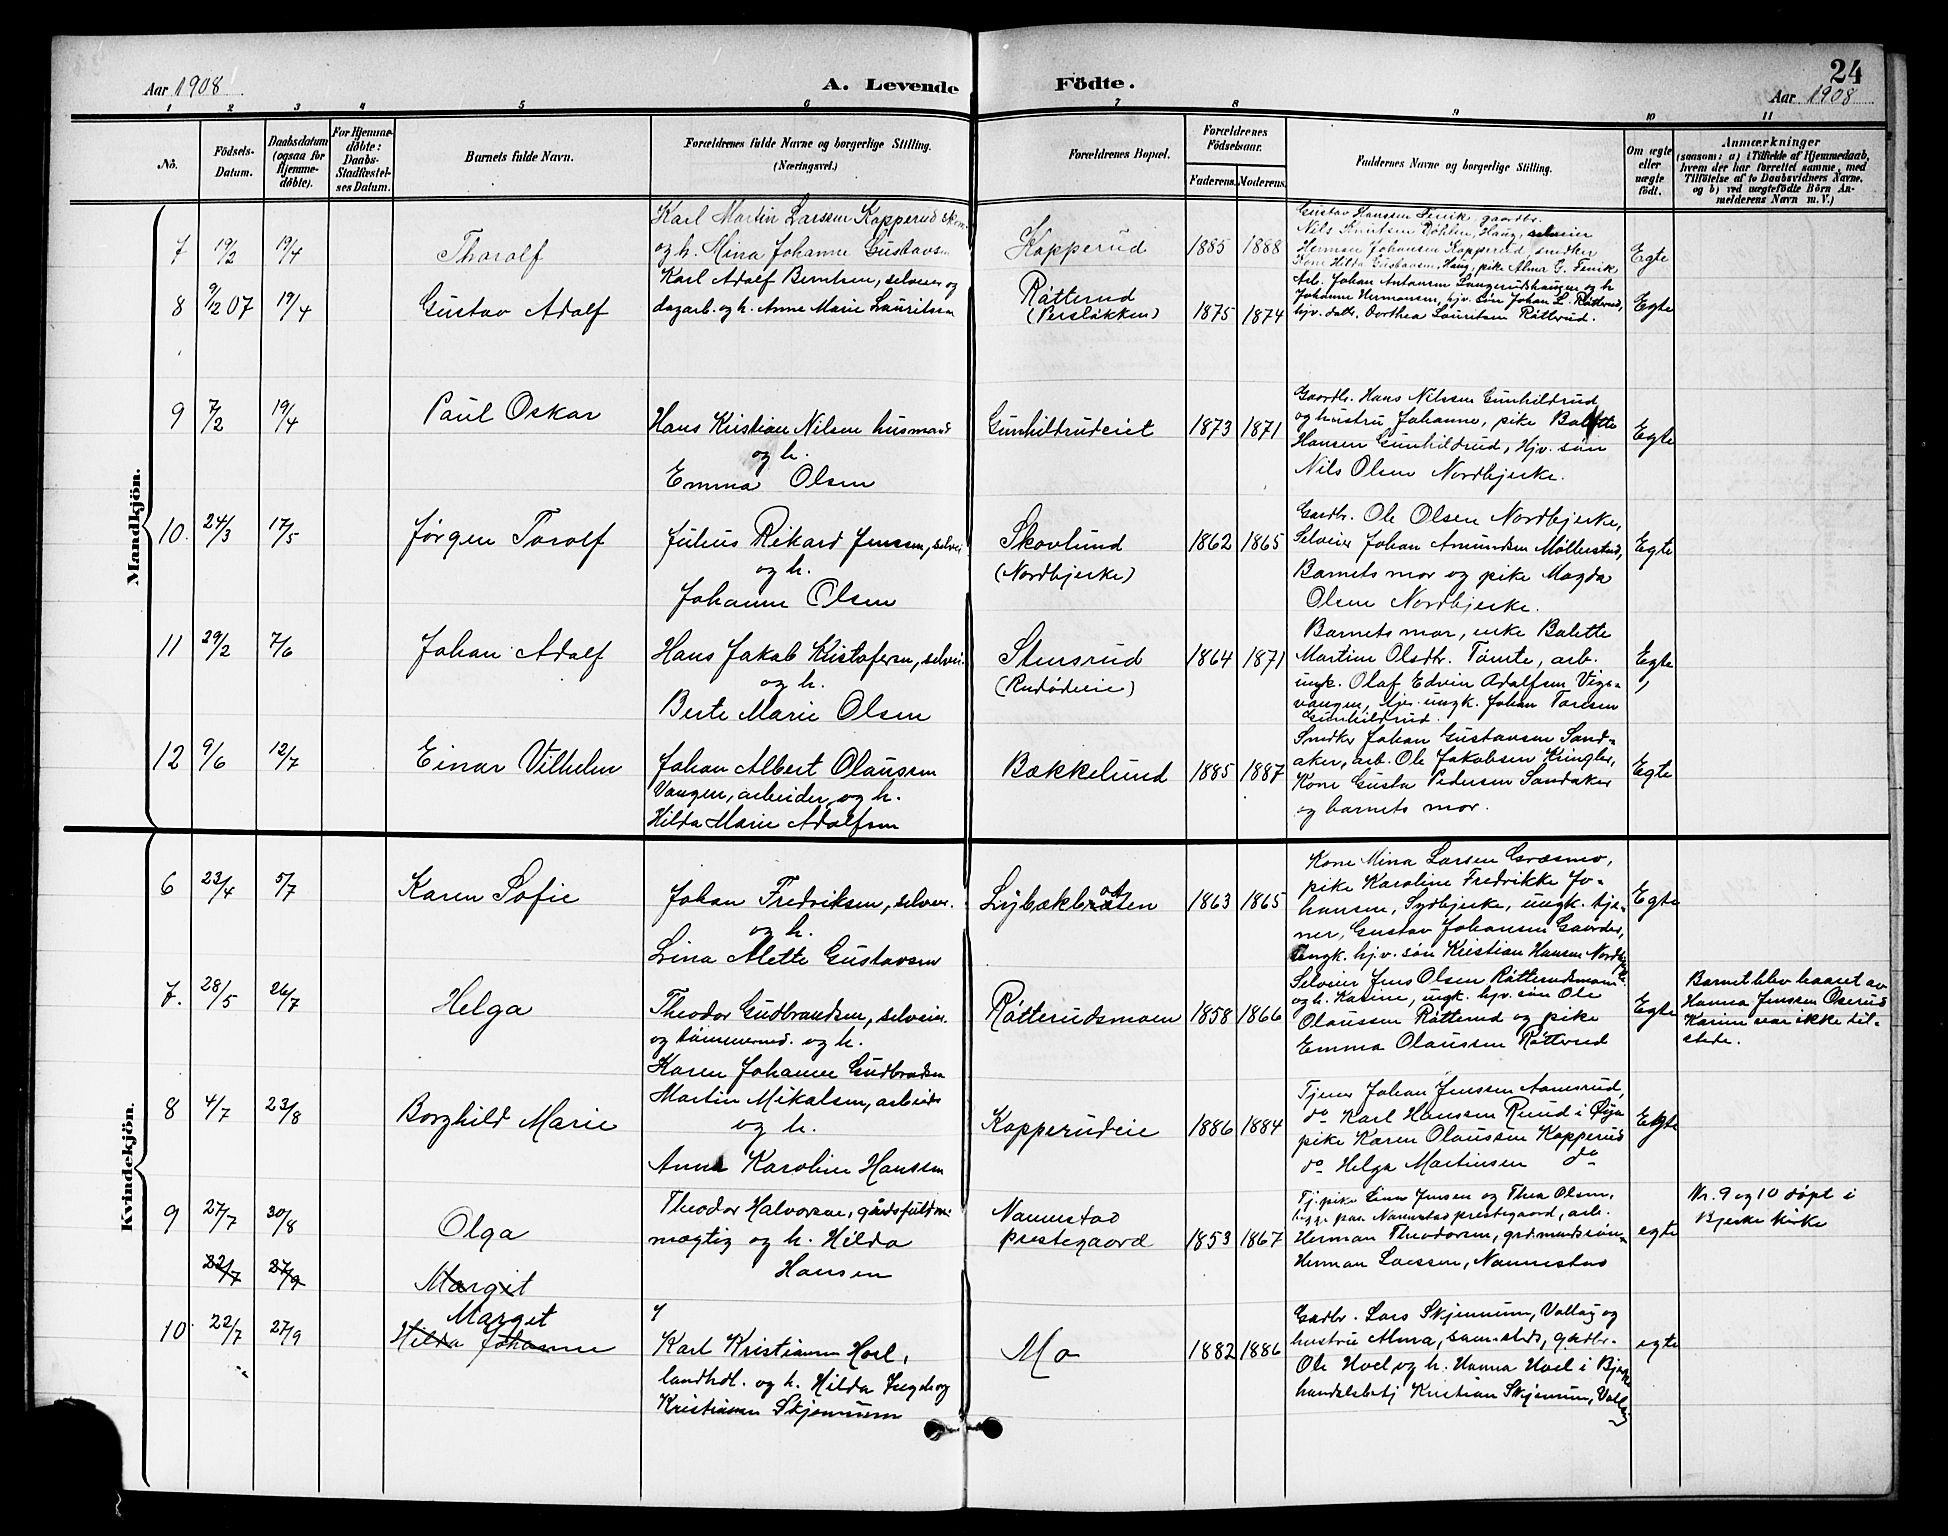 24
Aar 1908
A. Levende Födte.
Aar 1908
1 2 3 4 5 6 7 8 9 10 11
No.
Födsels-
Datum.
Daabsdatum
(ogsaa for
Hjemme-
döbte).
For Hjemme-
döbte:
Daabs-
Stadfæstel-
ses Datum.
Barnets fulde Navn.
Forældrenes fulde Navne og borgerlige Stilling.
(Næringsvei.)
Forældrenes Bopæl.
Forældrenes
Födselsaar.
Faderens. Moderens.
Faddernes Navne og borgerlige Stilling.
Om ægte
eller
uægte
födt.
Anmærkninger
(saasom: a) i Tilfælde af Hjemmedaab,
hvem der har forrettet samme, med
Tilföielse af to Daabsvidners Navne,
og b) ved uægtefödte Börn An-
melderens Navn m. V.)
Mandkjön.
7 19/2 19/4 Tharalf
Karl Martin Larssen Kopperud
og h. Mina Johanne Gustavsen
Kopperud 1885 1888
Gustav Hanssen Fenik, gaardbr.
Nils Knutsen Röhlen, Haug, selveier
Herman Johansen Kopperud, snedker
Kone Hilda Gustavsen, Haug, pike Alma G. Fenik
Egte
8 9/12 07 19/4 Gustav Adolf
Karl Adolf Berntsen, selveier og
dagarb. og h. Anne Marie Lauritssen
Råtterud
(Persløkken)
1875 1874
Arb. Johan Antonsen Langerudshaugen og h
Johanne Hermansen, hjv. søn Johan L. Råtterud,
hjv. datt. Dorthea Lauritsen Råtterud.
Egte
9 7/2 19/4 Paul Oskar
Hans Kristian Nilsen husmand
og h.
Emma Olsen
Gunhildrudeiet 1873 1871
Gaardbr. Hans Nilssen Gunhildrud
og hustru Johanne, pike Bolette
Hansen Gunhildrud, Hjv. søn
Nils Olsen Nordbjerke.
Egte
10. 24/3 17/5 Jørgen Torolf
Julius Rikard Jenssen, selvei
og h.
Johanne Olsen
Skovlund
(Nordbjerke)
1862 1865
Gardbr. Ole Olsen Nordbjerke,
Selveier Johan Amundsen Møllerstad,
Barnets mor og pike Magda
Olsen Nordbjerke.
Egte
11 29/2 7/6 Johan Adolf
Hans Jakob Kristofersen, selvei.
og h.
Berte Marie Olsen
Stensrud
(Rudødeie)
1864 1871
Barnets mor, enke Bolette
Martine Olsdtr. Tømte, arb.
ungk. Olaf Edvin Adolfsen Vigs-
vangen, tjen. ungk. Johan Toresen
Gunhildrud.
Egte
12 9/6 12/7 Einar Vilhelm
Johan Albert Olaussen
Vangen, arbeider og h.
Hilda Marie Adolfsen
Bækkelund 1885 1887
Snedker Johan Gustavsen Sand-
aker, arb. Ole Jakobsen Kringler,
Kone Gusta Pedersen Sandaker
og barnets mor.
Egte
Kvindekjön.
6 23/4 5/7 Karen Sofie
Johan Fredriksen, selveier.
og h.
Lina Alette Gustavsen
Lybækbråten 1863 1865
Kone Mina Larsen Græsmo,
pike Karoline Fredrikke Jo-
hansen, Sydbjerke, ungk. tje-
ner, Gustav Johansen Gaarder,
Ungk. hjv. søn Kristian Hansen Nordbye
Egte
7. 28/5 26/7 Helga
Theodor Gudbrandsen, selveier.
og tømmermd. og h.
Karen Johanne Gudbrandsen
Råtterudsmoen 1858 1866
Selveier Jens Olsen Råtterudsmoen
og h. Karine, ungk. hjv. søn Ole
Olaussen Råtterud og pike
Emma Olaussen Råtterud
Egte
Barnet blev baaret av
Hanna Jenssen Øserud
Karine var ikke til-
stede.
8 4/7 23/8 Borghild Marie
Martin Mikalsen, arbeider
og h.
Anna Karoline Hanssen
Kopperudeie 1886 1884
Tjener Johan Jenssen Aamsrud,
do Karl Hanssen Ruud i Øija
pike Karen Olaussen Kopperud
do Helga Martinsen do
Egte
9 27/7 30/8 Olga
Theodor Halvorsen, gårdsfuldm-
mægtig og h. Hilda
Hansen
Nannestad
prestegaard 1853 1867
Tj. pike Lina Jensen og Thea Olsen,
begge paa Nannestad prestegaard, arb.
Herman Theodorsen, grdmandssøn
Herman Larssen, Nannestad
egte
Nr. 9 og 10 døpt i
Bjerke kirke
22/7 27/9 Margit
10. 22/7 27/9 Margit
Hilda Johanne
Karl Kristiansen Hoel,
landhdl. og h. Hilda Ingeborg
Kristiansen Skjennum
Mo 1882 1886
Gardbr. Lars Skjennum, Vallag og
hustru Alma, sammesteds, gardbr.
Ole Hoel og h. Hanna Hoel i Bjerke
handelsbetj Kristian Skjennum, Vallag
egte